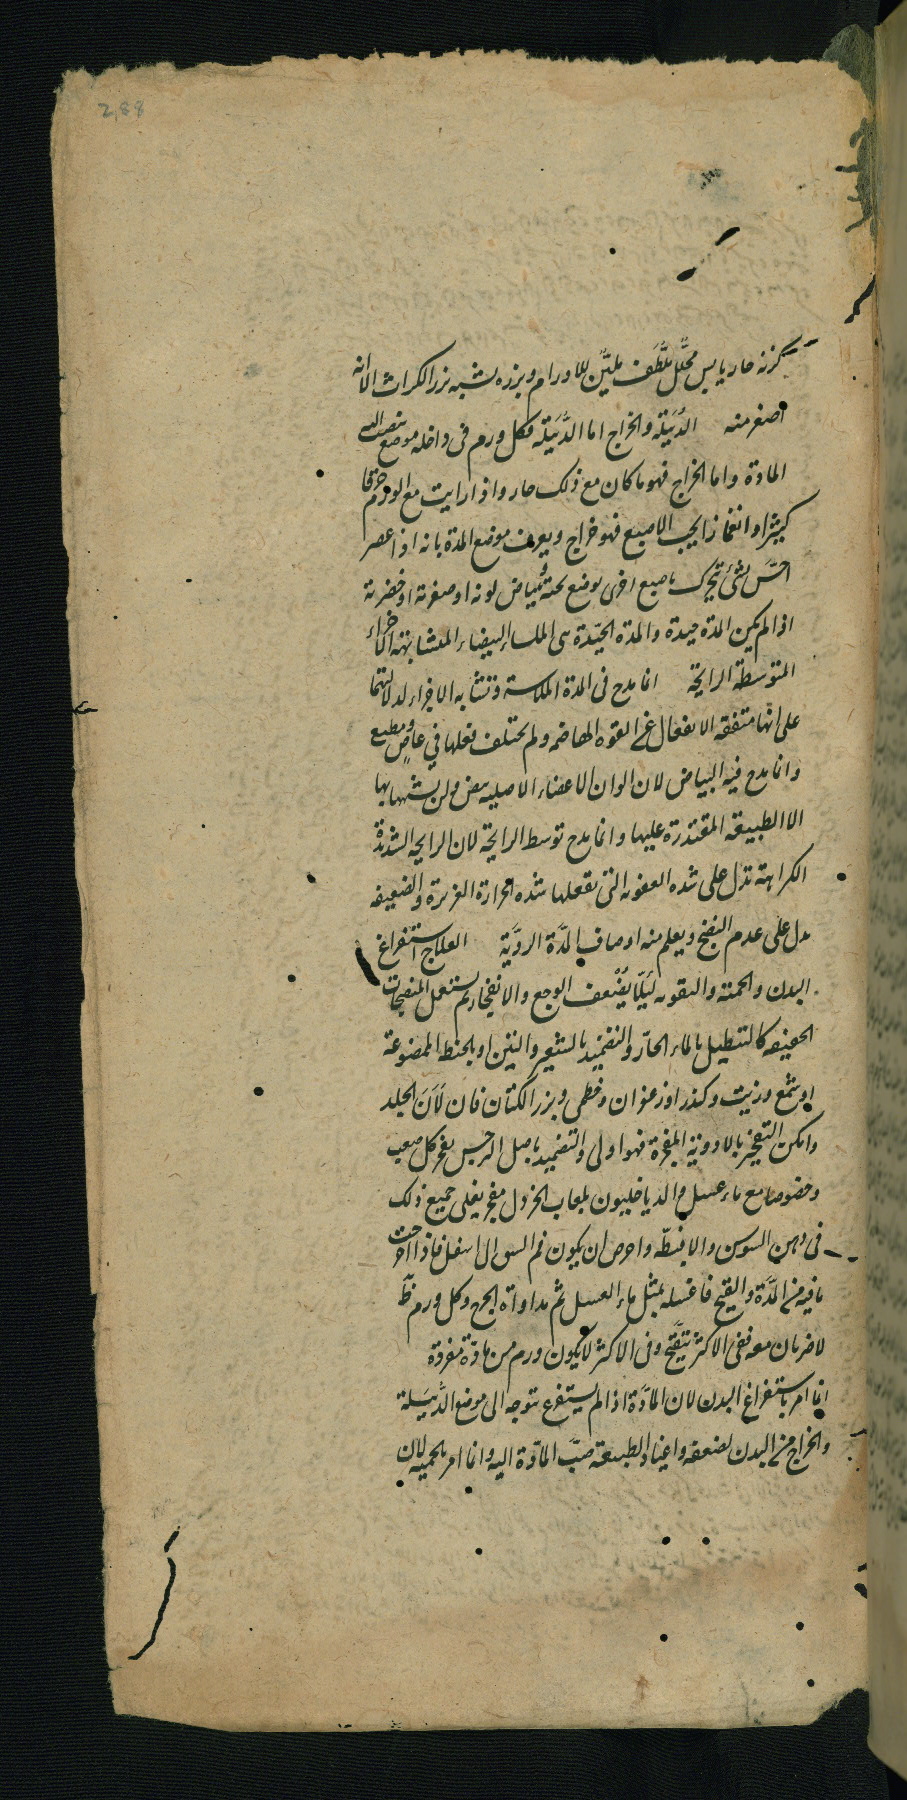 288
كزنه حار يابس محلل ملطف ملين للاورام وبزره يشبه بزر الكراث الا انه
اصغر منه الدبيلة والخراج اما الدبيلة فكل ورم فى داخله موضع ينصب اليه
المادة واما الخراج فهو ما كان مع ذلك حار واذا رايت مع الورم
كثيرا وانغمازا يجب الاصبع فهو خراج ويعرف موضع المدة بانه اذا عصر
احس بشئ يتحرك باصبع اخرى يوضع تحته وبياض لونه او صفرته او خضرته
اذا لم يكن المدة جيدة والمدة الجيدة هى الملساء البيضاء المتشابهة الاجزاء
المتوسطة الرايحة انما مدح فى المدة الملاسة وتشابه الاجزاء لدلالتهما
على انها متفقة الانفعال عن القوه الهاضمه ولم يختلف فعلها في عاصٍ ومطيع
وانما مدح فيه البياض لان الوان الاعضاء الاصليه بيض ولن يشبهها بها
الا الطبيعه المقتدرة عليها وانما مدح توسط الرايحة لان الرايحه الشديدة
الكراهة تدل على شده العفونه التى تفعلها شده الحرارة الغريبة والضعيفه
تدل على عدم النضج ويعلم منه اوصاف المدة الردية العلاج استفراغ
البدن والحمية والتقويه ليلا يضعف الوجع والانفجار ثم يستعمل المنضجات
الخفيفه كالتنطيل بالماء الحار والتضميد بالشعير والتين او بالحنطه الممضوغة
او شمع وزيت وكندر او زعفران وخطمى وبزر الكتان فان لان الجلد
وامكن التفجير بالادوية المفجرة فهو اولى والتضميد باصل النرجس يفجر كل صعب
وخصوصا مع ماء عسل والدياخيلون بلعاب الخردل مفجر يغلى جميع ذلك
فى دهن السوسن والا فبطه واحرص ان يكون فم الى اسفل فاذا اخرجت
ما فيه من المدة والقيح فاغسله بمثل ماء العسل ثم مداواة الجرح وكل ورم
لا ضربان معه ففى الاكثر يتقيح وفى الاكثر لا يكون ورم من مادة مفردة
انما امر باستفراغ البدن لان المادة اذا لم يستفرغ يتوجه الى موضع الدبيلة
والخراج من البدن لضعفه واعتياد الطبيعة صب المادة اليه وانما امر بالحميه لان